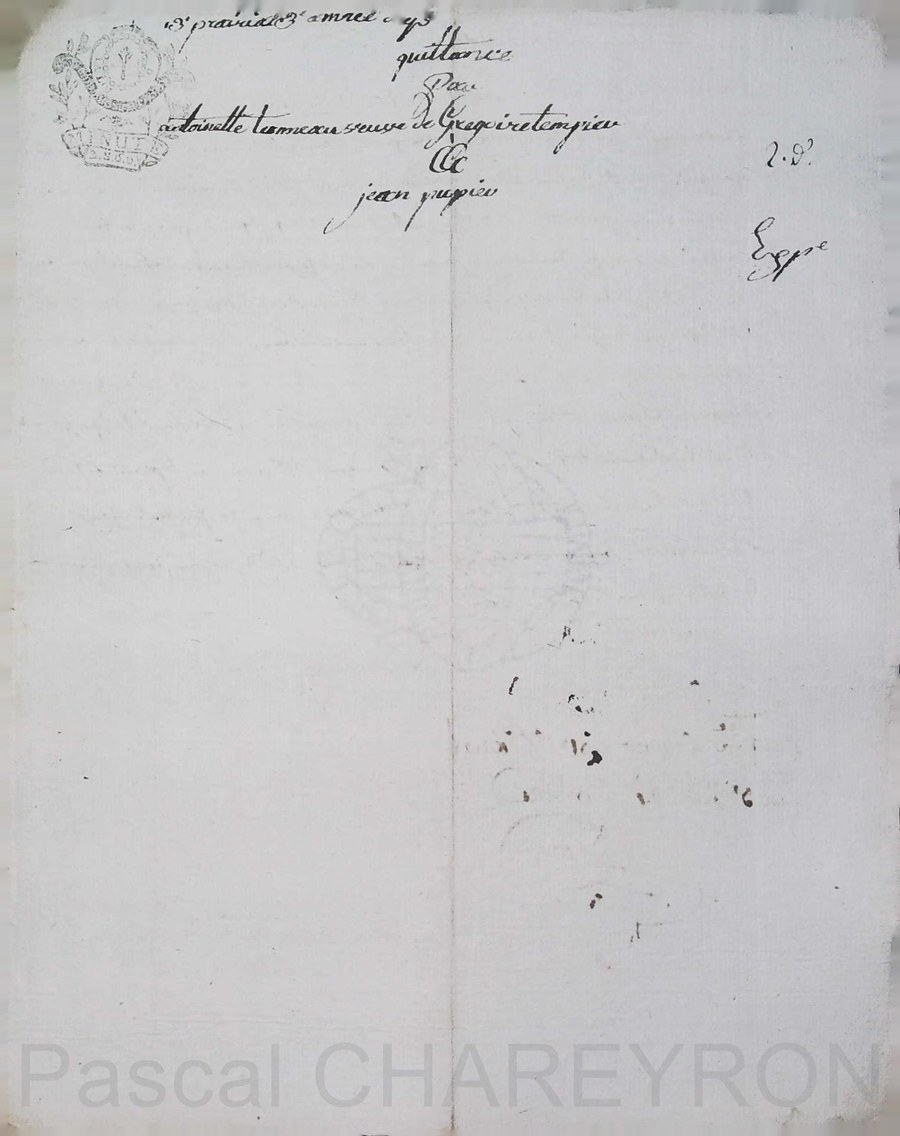 prairial 3e année
quittance
Par
antoinette tonneau veuve de Gregoire tempier
A
jean pupier
2. d.
Expe
MINUTE
Pascal CHAREYRON